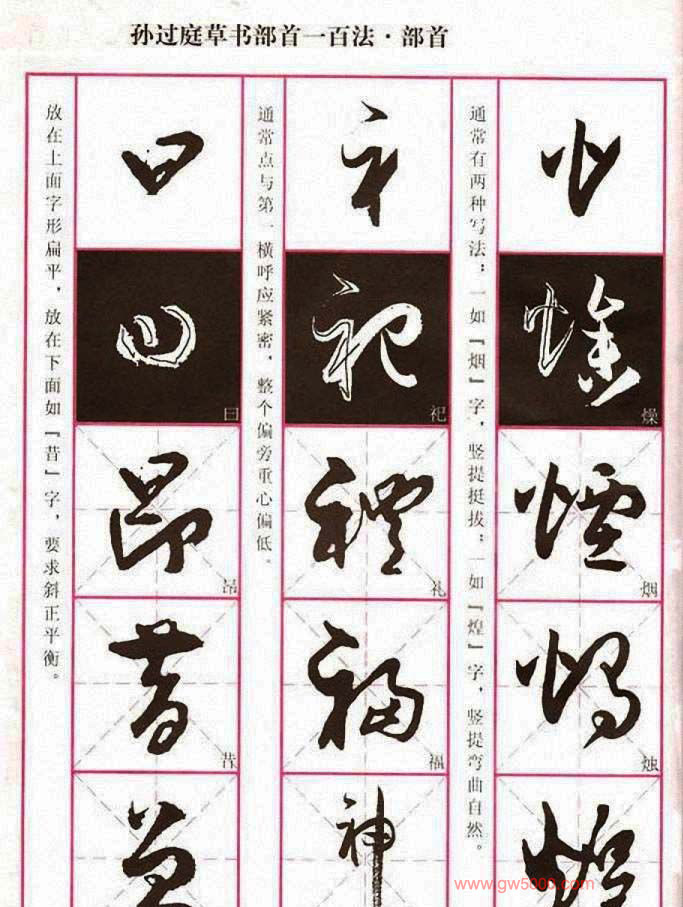 孙过庭草书部首一百法·部首
通常有两种写法：一如『烟』字，竖提挺拔；一如『煌』字，竖提弯曲自然。
火
燥
燥
烟
烟
烛
烛
煌
通常点与第一横呼应紧密，整个偏旁重心偏低。
礻
祀
祀
禮
礼
福
福
神
放在上面字形扁平，放在下面如『昔』字，要求斜正平衡。
曰
曰
曰
昂
昂
昔
昔
www.gw5000.com